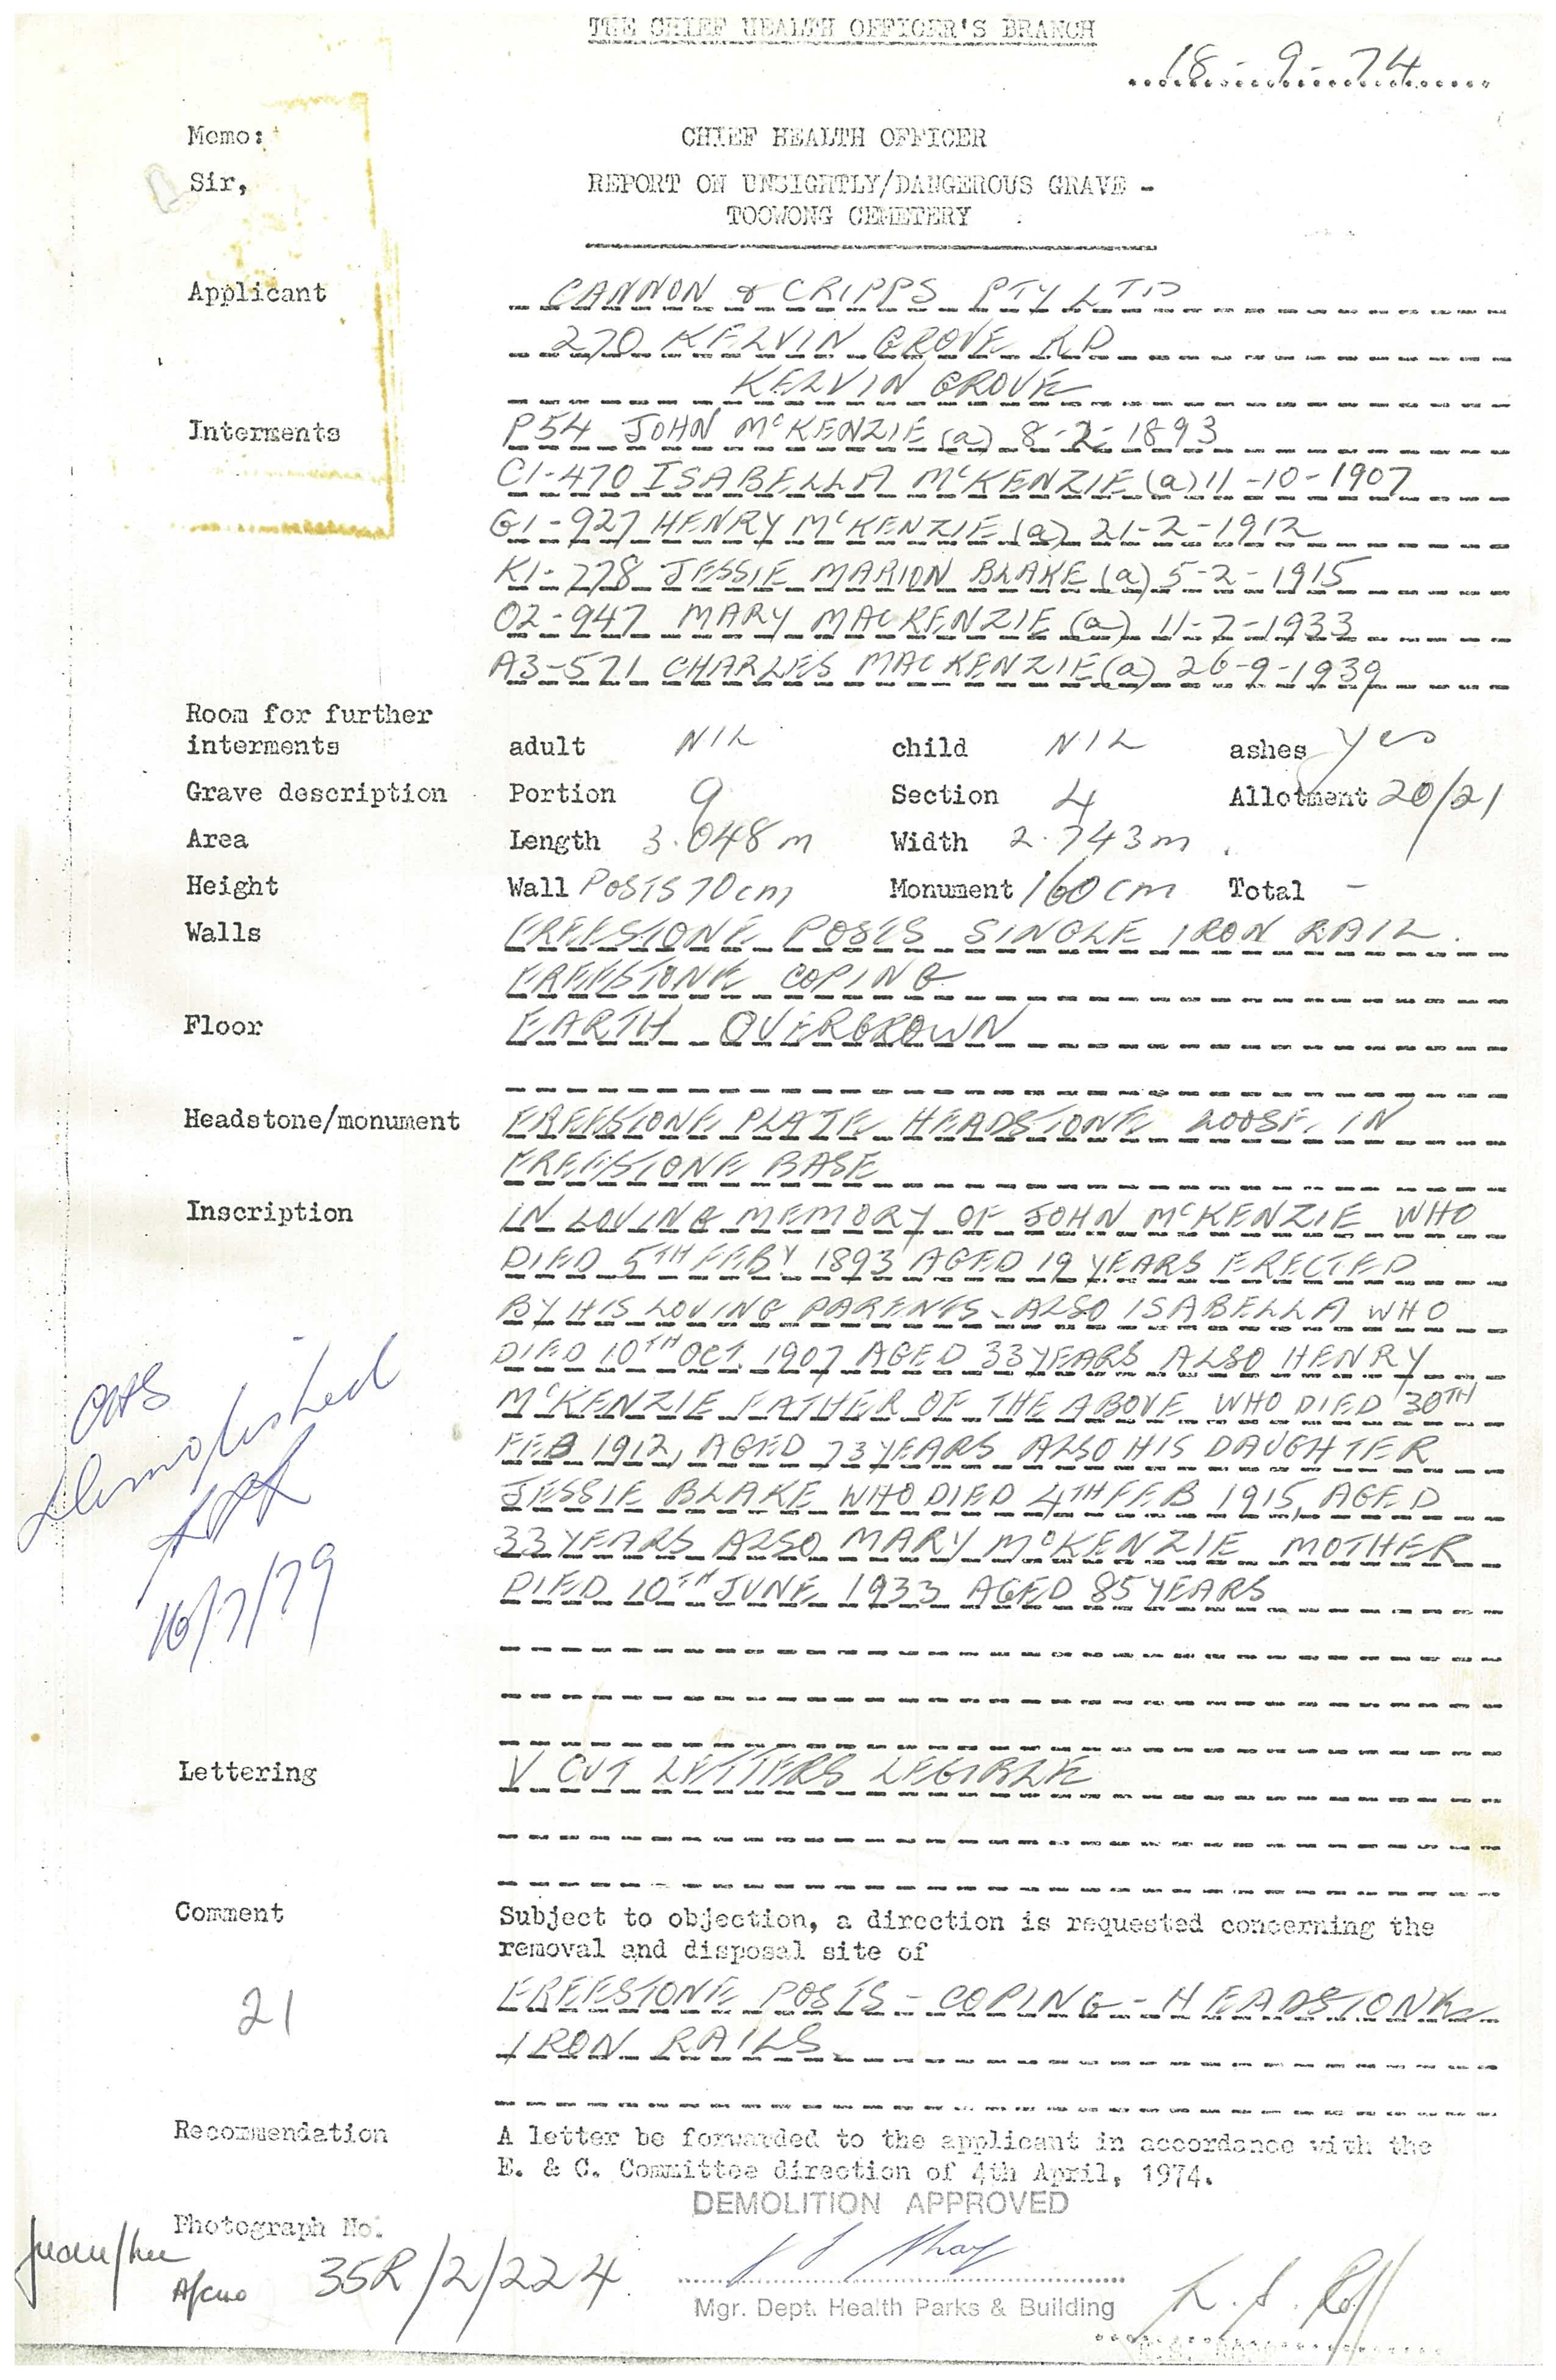 THE CHIEF HEALTH OFFICER'S BRANCH
18-9-74
Memo: CHIEF HEALTH OFFICER
Sir, REPORT ON UNSIGHTLY/DANGEROUS GRAVE -
TOOWONG CEMETERY
Applicant CANNON & CRIPPS PTY LTD
270 KELVIN GROVE RD
KELVIN GROVE
Interments P54 JOHN McKENZIE (a) 8-2-1893
C1-470 ISABELLA McKENZIE (a) 11-10-1907
G1-927 HENRY McKENZIE (a) 21-2-1912
K1-778 JESSIE MARION BLAKE (a) 5-2-1915
O2-947 MARY MACKENZIE (a) 11-7-1933
A3-571 CHARLES MACKENZIE (a) 26-9-1939
Room for further
interments adult NIL child NIL ashes yes
Grave description Portion 9 Section 4 Allotment 20/21
Area Length 3.048m Width 2.743m
Height Wall POSTS 70cm Monument 160cm Total -
Walls FREESTONE POSTS SINGLE IRON RAIL.
FREESTONE COPING
Floor EARTH OVERGROWN
Headstone/monument FREESTONE PLATE HEADSTONE LOOSE IN
FREESTONE BASE
Inscription IN LOVING MEMORY OF JOHN McKENZIE WHO
DIED 5TH FEBY 1893 AGED 19 YEARS ERECTED
BY HIS LOVING PARENTS. ALSO ISABELLA WHO
DIED 10TH OCT. 1907 AGED 33 YEARS ALSO HENRY
McKENZIE FATHER OF THE ABOVE WHO DIED 30TH
FEB 1912, AGED 73 YEARS ALSO HIS DAUGHTER
JESSIE BLAKE WHO DIED 4TH FEB 1915, AGED
33 YEARS ALSO MARY McKENZIE MOTHER
DIED 10TH JUNE 1933 AGED 85 YEARS
Demolished
16/7/79
Lettering V CUT LETTERS LEGIBLE
Comment Subject to objection, a direction is requested concerning the
removal and disposal site of
21 FREESTONE POSTS - COPING - HEADSTONE
IRON RAILS.
Recommendation A letter be forwarded to the applicant in accordance with the
E. & C. Committee direction of 4th April, 1974.
DEMOLITION APPROVED
Photograph No.
35R/2/224
Mgr. Dept. Health Parks & Building